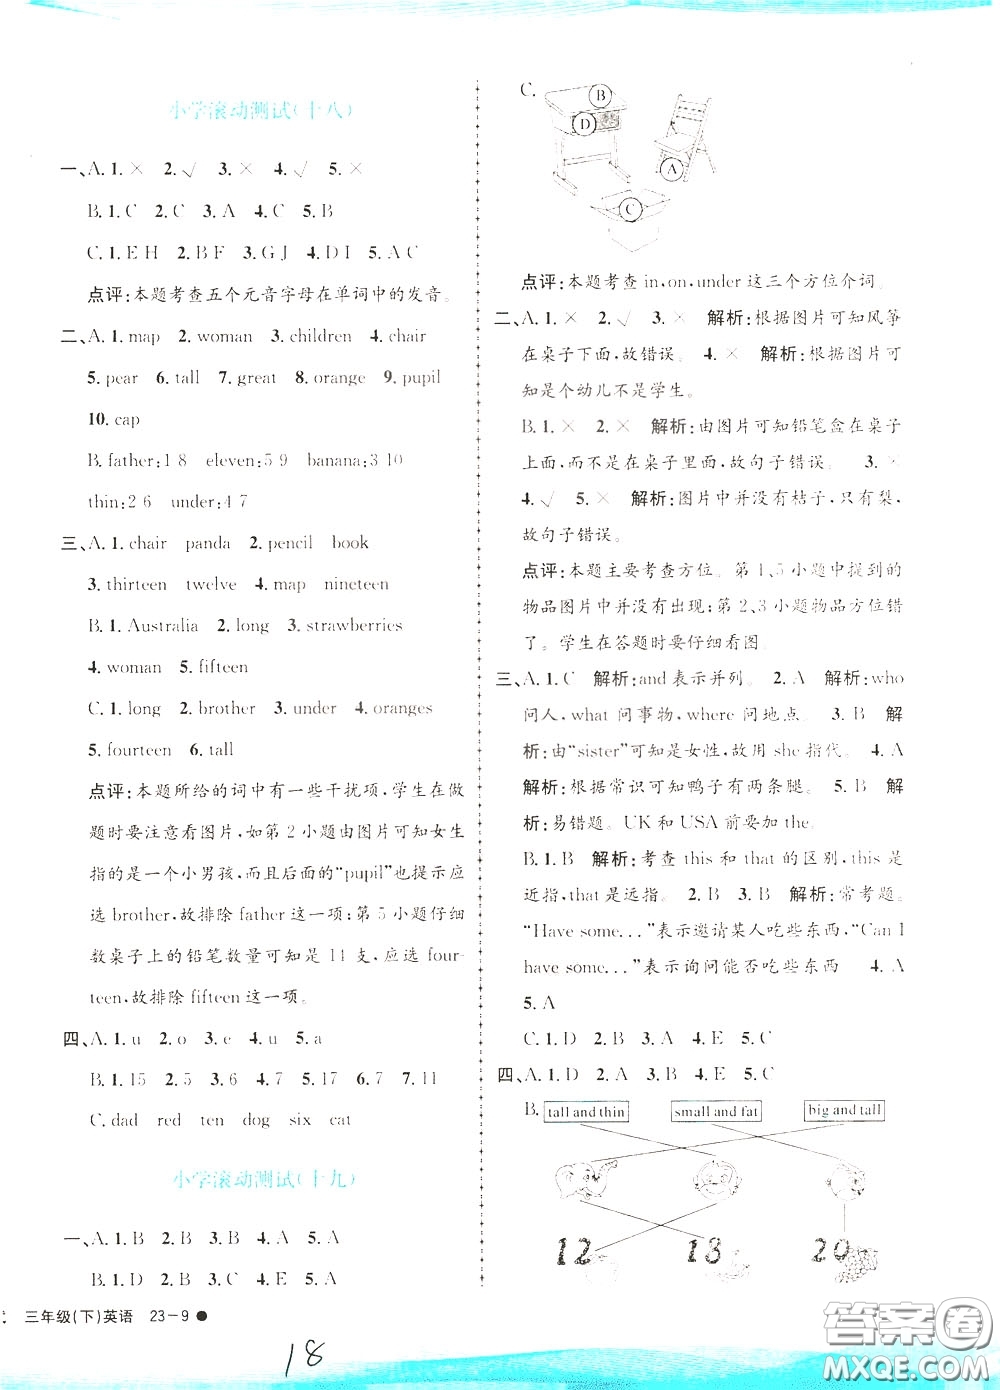 小学滚动测试(十八)
一、A.1.× 2.√ 3.× 4.√ 5.×
B.1.C 2.C 3.A 4.C 5.B
C.1.E H 2.B F 3.G J 4.D I 5.A C
点评:本题考查五个元音字母在单词中的发音。
二、A.1.map 2.woman 3.children 4.chair
5.pear 6.tall 7.great 8.orange 9.pupil
10.cap
B.father:1 8 eleven:5 9 banana:3 10
thin:2 6 under:4 7
三、A.1.chair panda 2.pencil book
3.thirteen twelve 4.map nineteen
B.1.Australia 2.long 3.strawberries
4.woman 5.fifteen
C.1.long 2.brother 3.under 4.oranges
5.fourteen 6.tall
点评:本题所给的词中有一些干扰项,学生在做
题时要注意看图片,如第2小题由图片可知女生
指的是一个小男孩,而且后面的“pupil”也提示应
选brother,故排除father这一项;第5小题仔细
数桌子上的铅笔数量可知是14支,应选four-
teen,故排除fifteen这一项。
四、A.1.u 2.o 3.e 4.u 5.a
B.1.15 2.5 3.6 4.7 5.12 6.7 7.11
C.dad red ten dog six cat
小学滚动测试(十九)
一、A.1.B 2.B 3.B 4.A 5.A
B.1.D 2.B 3.C 4.E 5.A
三年级(下)英语 23-9
18
C.
B
D
A
C
点评:本题考查in,on,under这三个方位介词。
二、A.1.× 2.√ 3.× 解析:根据图片可知风筝
在桌子下面,故错误。 4.× 解析:根据图片可
知是个幼儿不是学生。
B.1.× 2.× 解析:由图片可知铅笔盒在桌子
上面,而不是在桌子里面,故句子错误。 3.×
4.√ 5.× 解析:图片中并没有桔子,只有梨,
故句子错误。
点评:本题主要考查方位。第1、5小题中提到的
物品图片中并没有出现;第2、3小题物品方位错
了。学生在答题时要仔细看图。
三、A.1.C 解析:and表示并列。 2.A 解析:who
问人,what 问事物,where 问地点。 3.B 解
析:由“sister”可知是女性,故用she指代。 4.A
解析:根据常识可知鸭子有两条腿。 5.B 解
析:易错题。UK和USA前要加the。
B.1.B 解析:考查this和that的区别,this是
近指,that是远指。 2.B 3.B 解析:常考题。
“Have some...”表示邀请某人吃些东西,“Can I
have some...”表示询问能否吃些东西 4.A
5.A
C.1.D 2.B 3.A 4.E 5.C
四、A.1.D 2.B 3.A 4.E 5.C
B. tall and thin small and fat big and tall
12 18 20
答案圈
MXQE.COM